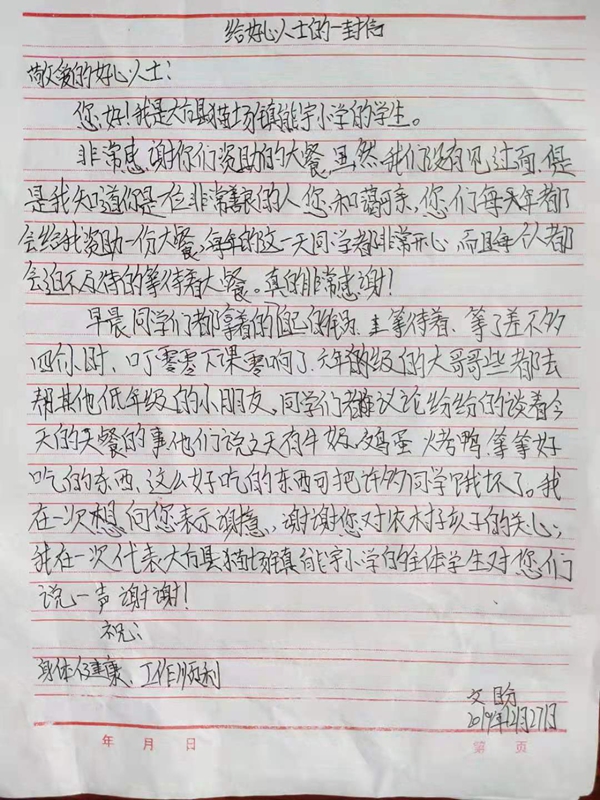 给好心人士的一封信
敬爱的好心人士：
您,好！我是大方县猫场镇能宇小学的学生。
非常感谢你们资助的大餐,虽然,我们没有见过面,但
是我知道你是一位非常善良的人您,和蔼可亲,您,们每天年都
会给我资助一份大餐,每年的这一天同学都非常开心,而且每个人都
会迫不及待的等待着大餐。真的非常感谢！
早晨同学们都拿着的自己的 等待着、等了差不多
四个小时、叮零零下课零响了、六年的级的大哥哥些都去
帮其他低年级的小朋友,同学们都议论纷纷的谈着今
天的大餐的事,他们说:今天有牛奶、鸡蛋、火烤鸭、等等好
吃的东西,这么好吃的东西可把许多同学饿坏了。我
在一次想向您表示 ,谢谢您对农木寸孩子的关心;
我在一次代表大方县猫场镇能宇小学的全体学生对您,们
说一声谢谢！
祝:
身体健康、工作顺利
文盼
2019年12月27日
年 月 日 第 页